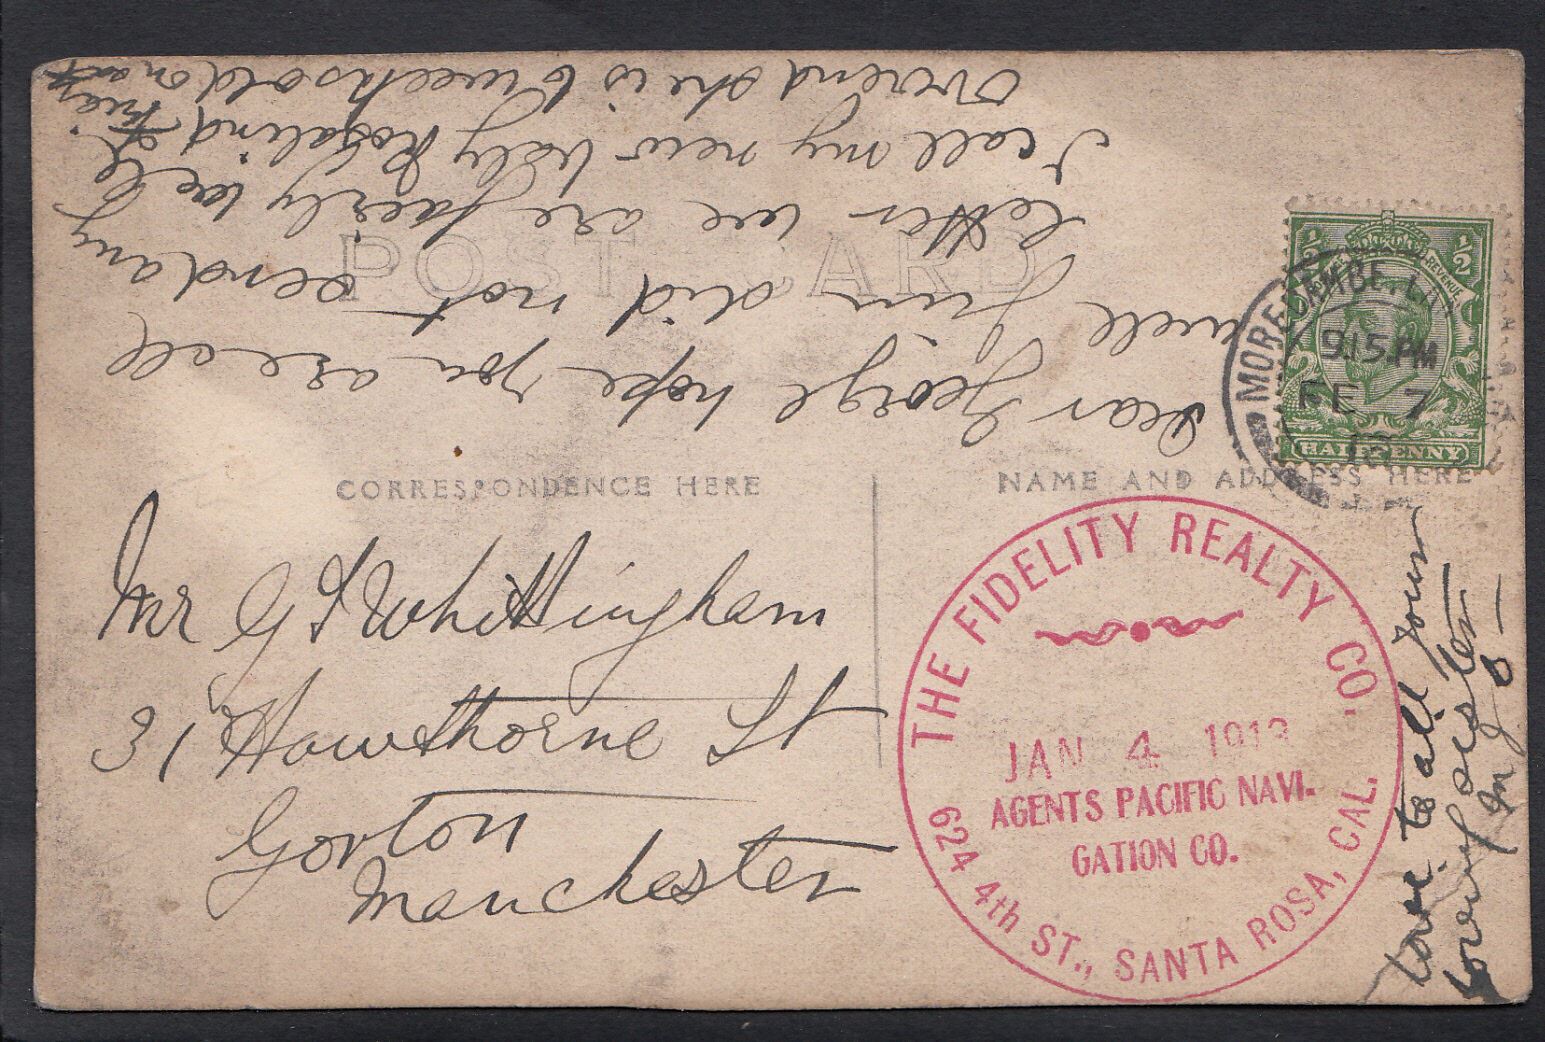 POST CARD
CORRESPONDENCE HERE
NAME AND ADDRESS HERE
Dear George hope you are all
well Jim did not send any
letter we are fairly well
I call my new baby Rosalind
Overend she is 6 weeks old on
Mr G F Whittingham
31 Hawthorne St
Gorton
Manchester
Love to all your
loving sister
M J O
½ ½
REVENUE
HALFPENNY
MORECAMBE
9.15 PM
FE 7
13
THE FIDELITY REALTY CO.
JAN 4 1913
AGENTS PACIFIC NAVI-
GATION CO.
624 4th ST., SANTA ROSA, CAL.